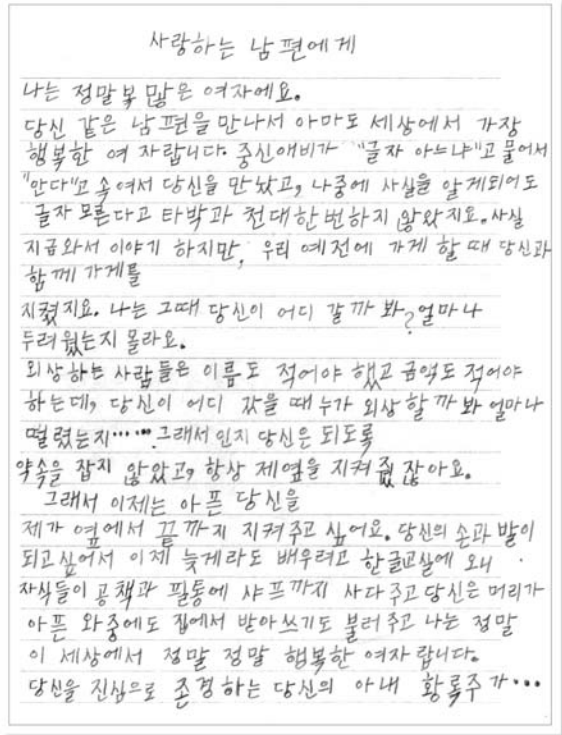 사랑하는 남편에게
나는 정말 복 많은 여자에요.
당신 같은 남편을 만나서 아마도 세상에서 가장
행복한 여 자랍니다. 중신애비가 "글자 아느냐"고 물어서
"안다"고 속여서 당신을 만났고, 나중에 사실을 알게되어도
글자 모른다고 타박과 천대한번하지 않았지요. 사실
지금와서 이야기 하지만, 우리 예전에 가게 할 때 당신과
함께 가게를
지켰지요. 나는 그때 당신이 어디 갈까 봐? 얼마나
두려웠는지 몰라요.
외상 하는 사람들은 이름도 적어야 했고 금액도 적어야
하는데, 당신이 어디 갔을 때 누가 외상 할까 봐 얼마나
떨렸는지...... 그래서 인지 당신은 되도록
약속을 잡지 않았고, 항상 제옆을 지켜 줬 잖아요.
그래서 이제는 아픈 당신을
제가 옆에서 끝까지 지켜주고 싶어요. 당신의 손과 발이
되고싶어서 이제 늦게라도 배우려고 한글교실에 오니
자식들이 공책과 필통에 샤프까지 사다주고 당신은 머리가
아픈 와중에도 집에서 받아쓰기도 불러주고 나는 정말
이 세상에서 정말 정말 행복한 여자 랍니다.
당신을 진심으로 존경하는 당신의 아내 황록주가...